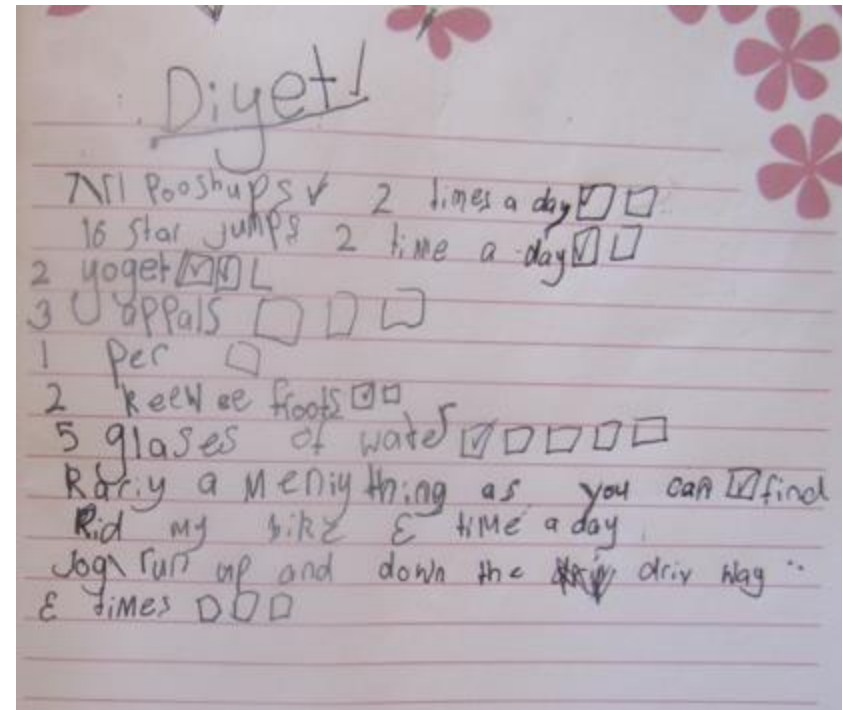 Diyet!
Pooshups 2 times a day
16 star jumps 2 time a day
2 yoget
3 appals
1 per
2 keewee froots
5 glases of water
Rariy a meniy thing as you can find
Rid my bike 3 time a day
Jog\run up and down the driv way
3 times